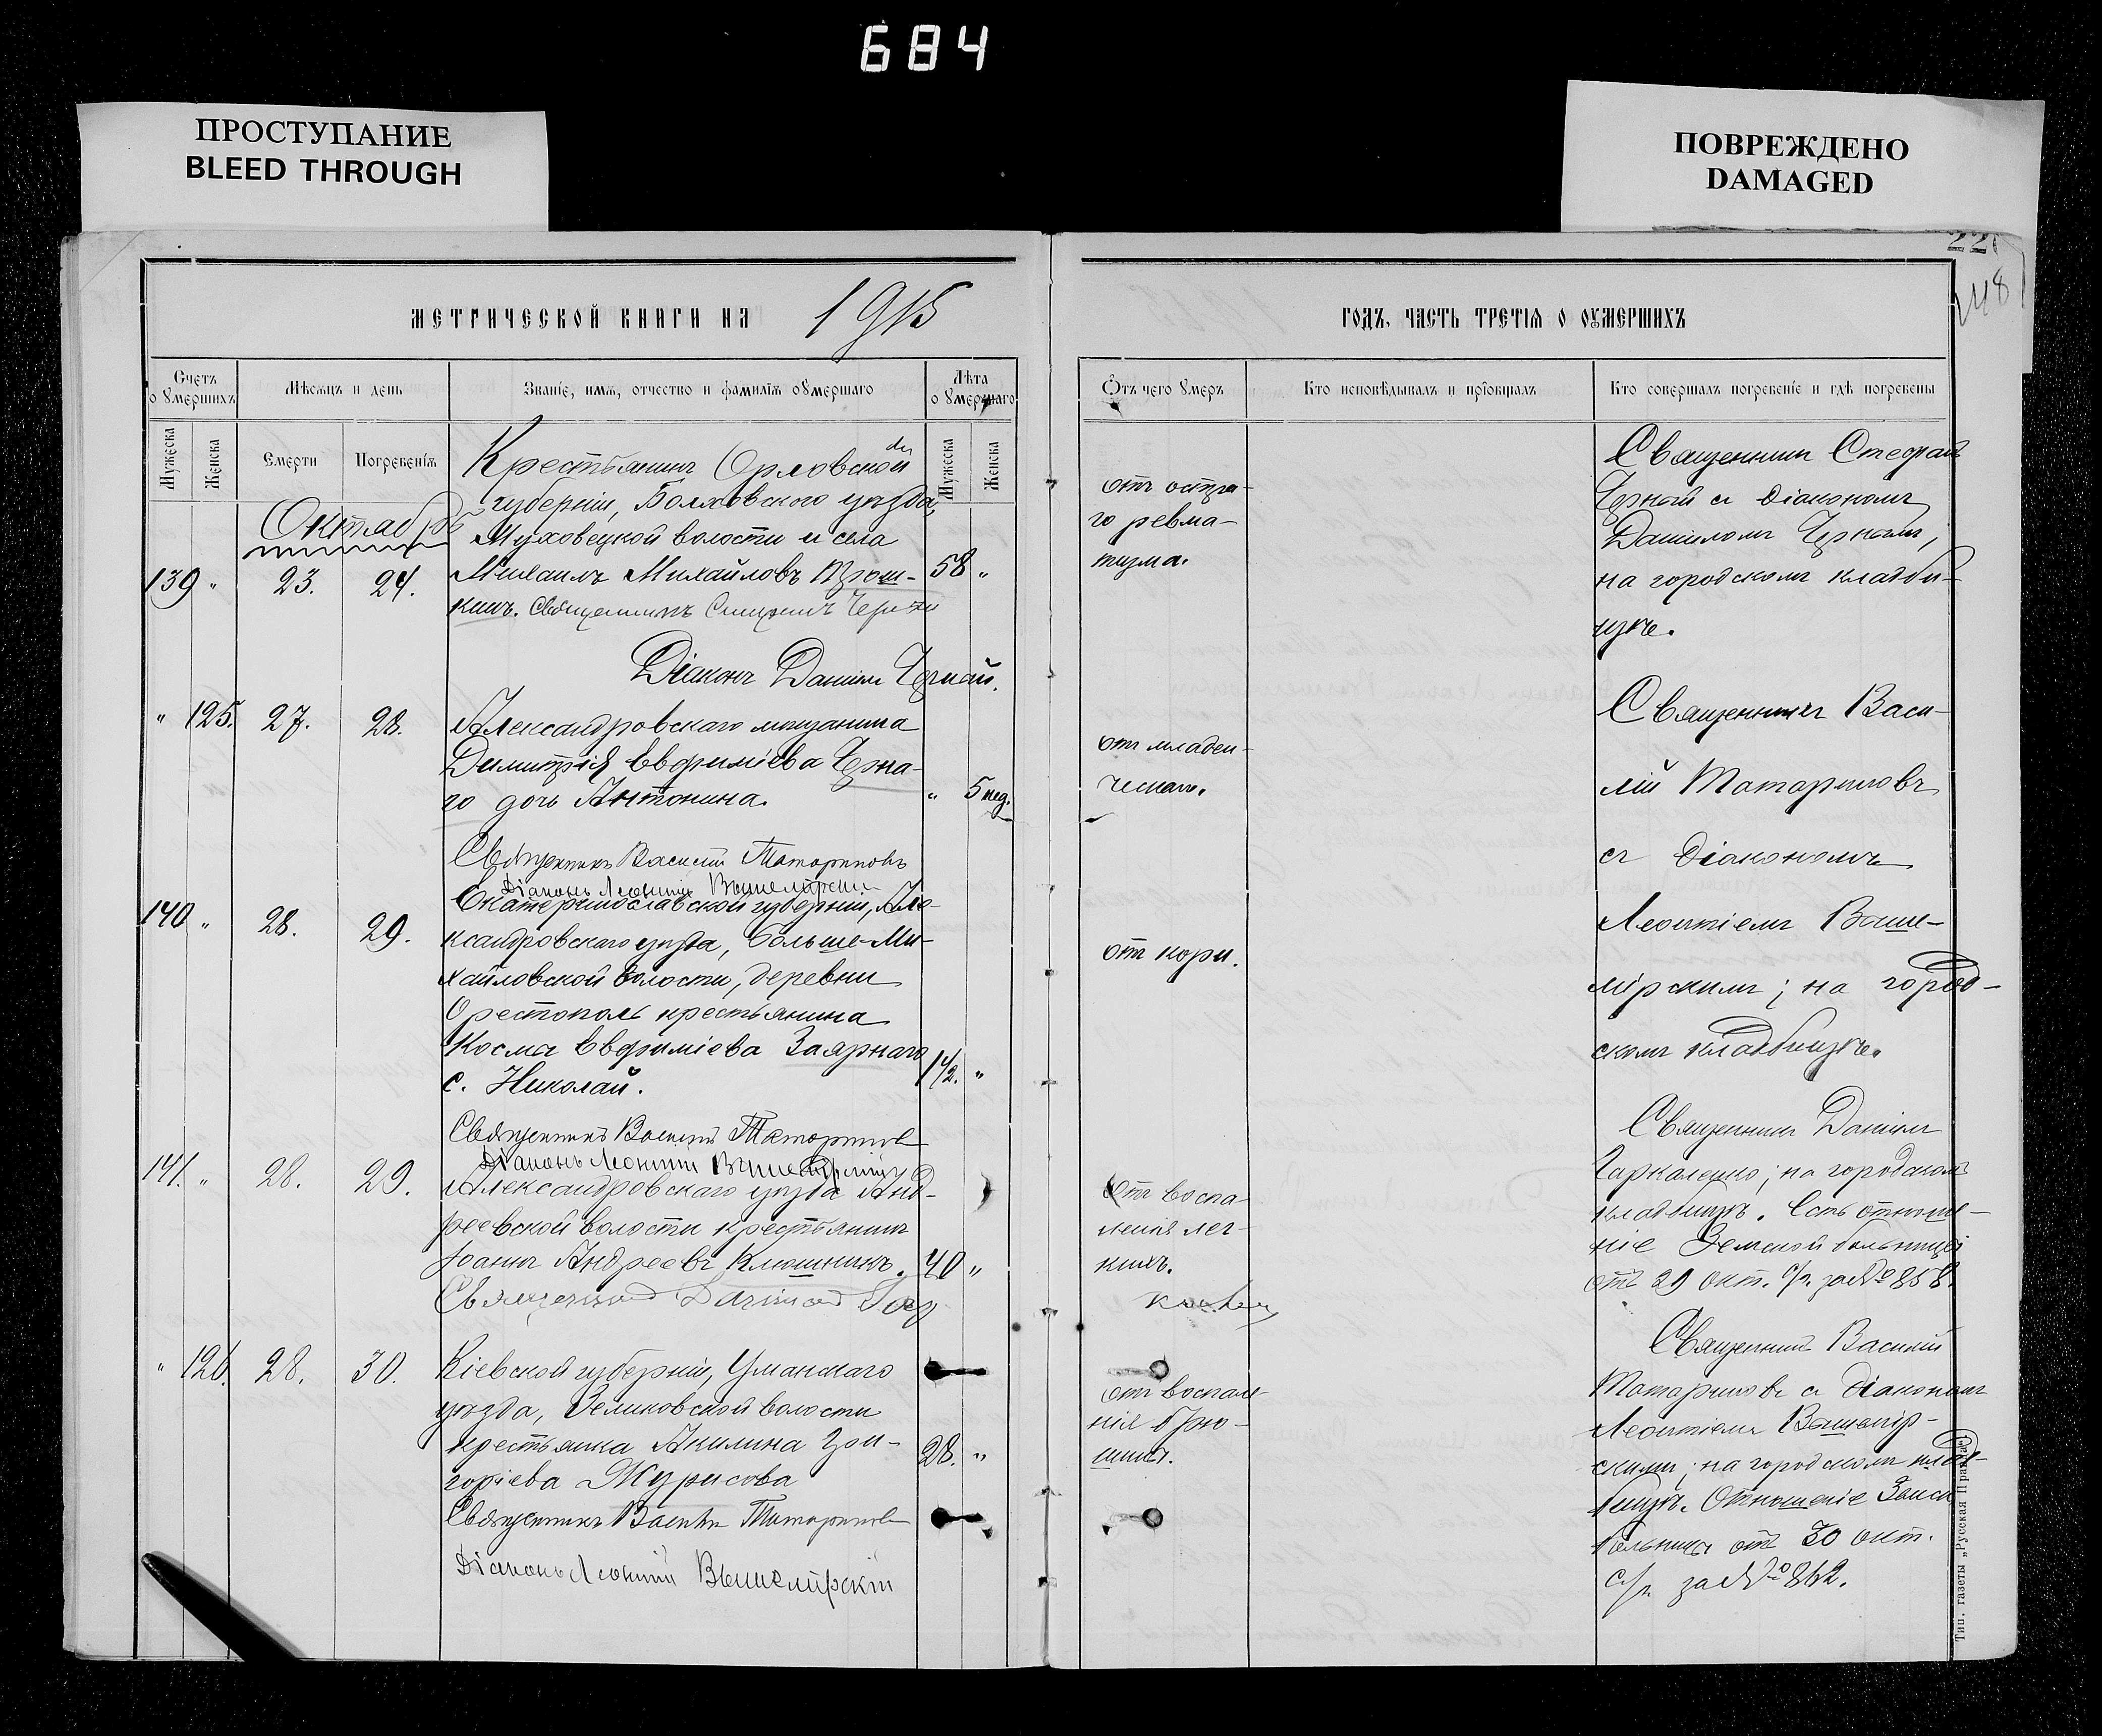 684
ПРОСТУПАНИЕ
BLEED THROUGH
ПОВРЕЖДЕНО
DAMAGED
22
248
МЕТРИЧЕСКОЙ КНИГИ НА 1915
ГОДЪ, ЧАСТЬ ТРЕТІѦ О ОУМЕРШИХЪ
Счетъ оумершихъ
Мѣсѧцъ и день
Званіе, имѧ, отчество и фамиліѧ оумершаго
Лѣта оумершаго
Ѿтъ чего умеръ
Кто исповѣдывалъ и пріобщалъ
Кто совершалъ погребеніе и гдѣ погребены
Мужеска
Женска
Смерти
Погребеніѧ
Мужеска
Женска
Октябрь
139 " 23. 24.
Крестьянинъ Орловской
губерніи, Болховского уѣзда,
Муховецкой волости и села
Михаилъ Михайловъ
58 "
кинъ. Священникъ
Діаконъ Даніилъ Черный.
отъ остра-
го ревма-
тизма.
Священникъ Стефанъ
Черный съ діакономъ
Данииломъ Чернымъ,
на городскомъ кладби-
щѣ.
" 125. 27. 28.
Александровскаго мѣщанина
Димитрія Евфиміева Черна-
го дочь Антонина.
" 5 нед.
Священникъ Василій Татариновъ
Діаконъ Леонтій Вышемірскій
отъ младен-
ческой.
Священникъ Васи-
лій Татариновъ
съ діакономъ
Леонтіемъ Выше-
мірскимъ; на город-
скомъ кладбищѣ.
140 " 28. 29.
Екатеринославской губерніи, Але-
ксандровскаго уѣзда, Больше-Ми-
хайловской волости, деревни
Орестополь крестьянина
Косма Евфиміева Заярнаго
с. Николай.
1½. "
Священникъ Василій Татариновъ
Діаконъ Леонтій Вышемірскій
отъ кори.
141. " 28. 29.
Александровскаго уѣзда Анд-
реевской волости крестьянинъ
Іоаннъ Андреевъ Клюшникъ.
40 "
Священникъ Даніилъ
Отъ воспа-
ленія лег-
кихъ.
Священникъ Даніилъ
на городскомъ
кладбищѣ. Есть отноше-
ніе Земской больницы
отъ 29 окт. с/г. за № 858.
" 126. 28. 30.
Кіевской губерніи, Уманскаго
уѣзда, волости
крестьянка Акилина Гри-
горіева Журисова
28. "
Священникъ Василій Татариновъ
Діаконъ Леонтій Вышемірскій
отъ воспале-
нія брю-
шины.
Священникъ Василій
Татариновъ съ діакономъ
Леонтіемъ Вышемір-
скимъ; на городскомъ клад-
бищѣ. Отношеніе Земск.
больницы отъ 30 окт.
с/г за № 862.
Тип. газеты „Русская Правда"